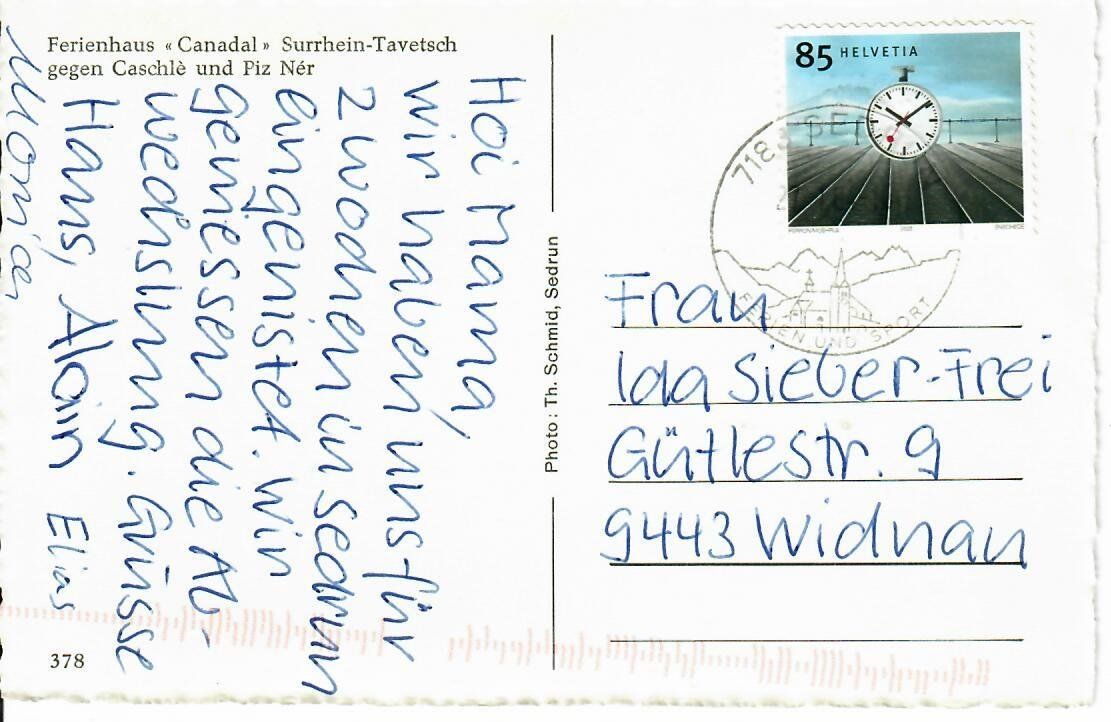 Ferienhaus « Canadal » Surrhein-Tavetsch
gegen Caschlè und Piz Nér
Hoi Mama,
wir haben uns für
2 Wochen in Sedrun
eingenistet. Wir
geniessen die Ab-
wechslung. Grüsse
Hans, Alain Elias
Monica
378
Photo: Th. Schmid, Sedrun
85 HELVETIA
7183 SE
FERIEN UND SPORT
Frau
Ida Sieber-Frei
Gütlestr. 9
9443 Widnau